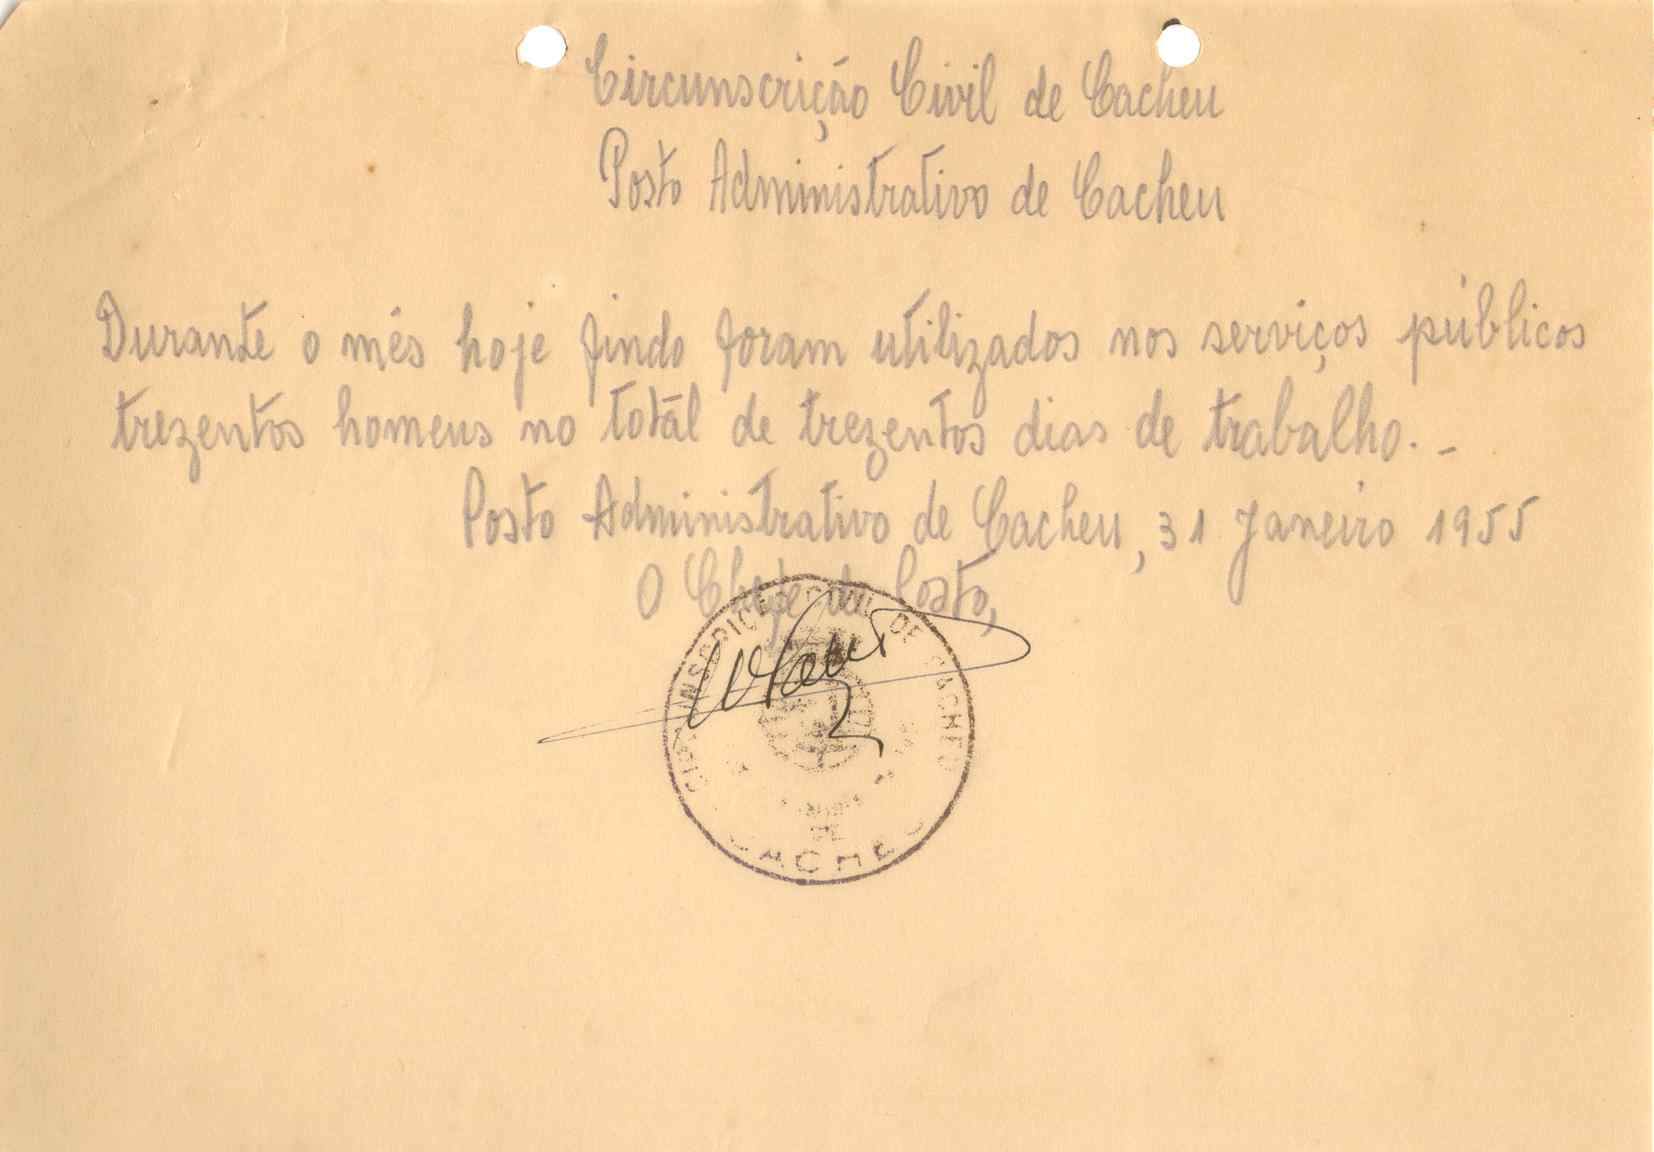 Circunscrição Civil de Cacheu
Posto Administrativo de Cacheu
Durante o mês hoje findo foram utilizados nos serviços públicos
trezentos homens no totál de trezentos dias de trabalho._
Posto Administrativo de Cacheu, 31 Janeiro 1955
O Chefe do Posto,
DE CACHEU
CACHEU